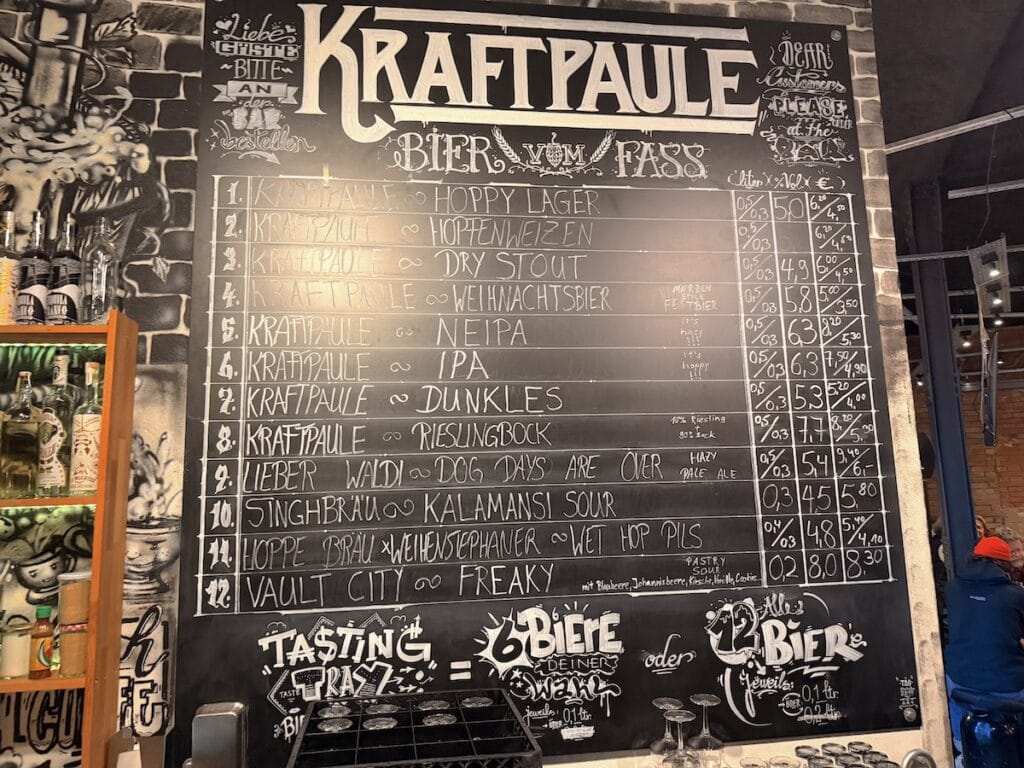 Liebe
GÄSTE
BITTE
AN
der
BAR
bestellen
KRAFTPAULE
DEAR
Customers
PLEASE
ORDER
at the
BAR
BIER VOM FASS
liter % Vol. €
1. KRAFTPAULE ~ HOPPY LAGER 0,5/0,3 5,0 6,20/4,50
2. KRAFTPAULE ~ HOPFENWEIZEN 0,5/0,3
3. KRAFTPAULE ~ DRY STOUT 0,5/0,3 4,9 6,00/4,50
4. KRAFTPAULE ~ WEIHNACHTSBIER MÄRZEN STYLE FESTBIER 0,5/0,3 5,8 5,00/3,50
5. KRAFTPAULE ~ NEIPA It's hazy !!! 0,5/0,3 6,3 8,20/5,30
6. KRAFTPAULE ~ IPA It's hoppy !!! 0,5/0,3 6,3 7,50/4,90
7. KRAFTPAULE ~ DUNKLES 0,5/0,3 5,3 5,20/4,00
8. KRAFTPAULE ~ RIESLINGBOCK Riesling 80% Bock 0,5/0,3 7,7
9. LIEBER WALDI ~ DOG DAYS ARE OVER HAZY PALE ALE 0,5/0,3 5,4 9,40/6,-
10. SINGHBRÄU ~ KALAMANSI SOUR 0,3 4,5 5,80
11. HOPPE BRÄU x WEIHENSTEPHANER ~ WET HOP PILS 0,4/0,3 4,8 5,40/4,10
12. VAULT CITY ~ FREAKY PASTRY SOUR mit Blaubeere, Johannisbeere, Kirsche, Vanille, Cookies... 0,2 8,0 8,30
TA$TING TRAY = 6 BIERE DEINER WAHL oder Alle 12 BIERe
jeweils 0,1 ltr
jeweils: 0,1 ltr
0,2 ltr